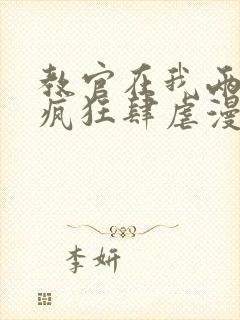 教官在我两
疯狂肆虐漫
李妍